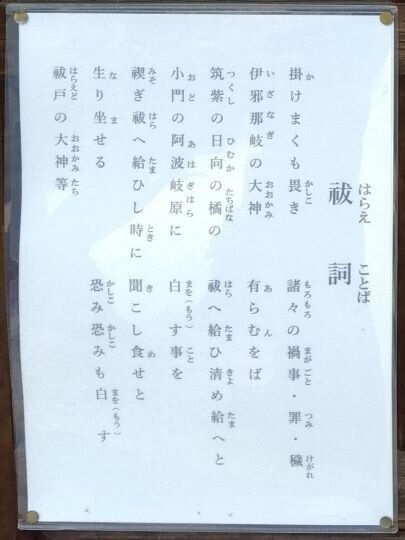 はらえ ことば
祓詞
か かしこ
掛けまくも畏き
いざなぎ おおかみ
伊邪那岐の大神
つくし ひむか たちばな
筑紫の日向の橘の
おど あはぎはら
小門の阿波岐原に
みそ はら たま とき
禊ぎ祓へ給ひし時に
な ま
生り坐せる
はらえど おおかみたち
祓戸の大神等
もろもろ まがごと つみ けがれ
諸々の禍事・罪・穢
あ ん
有らむをば
はら たま きよ たま
祓へ給ひ清め給へと
まを（もう） こと
白す事を
き め
聞こし食せと
かしこ かしこ まを（もう）
恐み恐みも白す